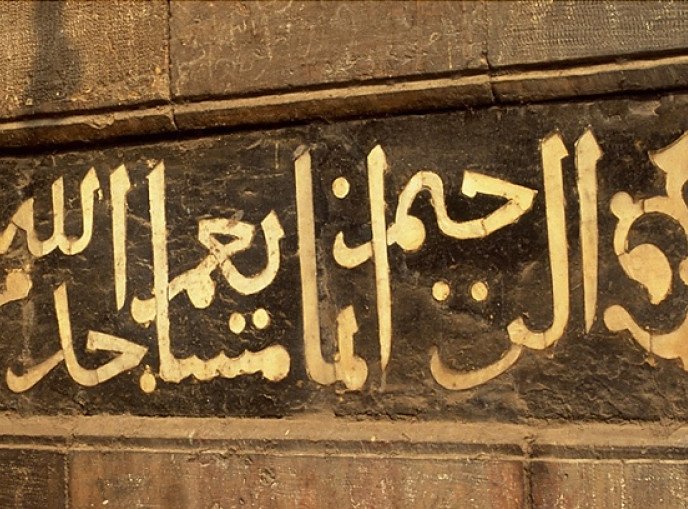 الرحيم انما يعمر مساجد الله